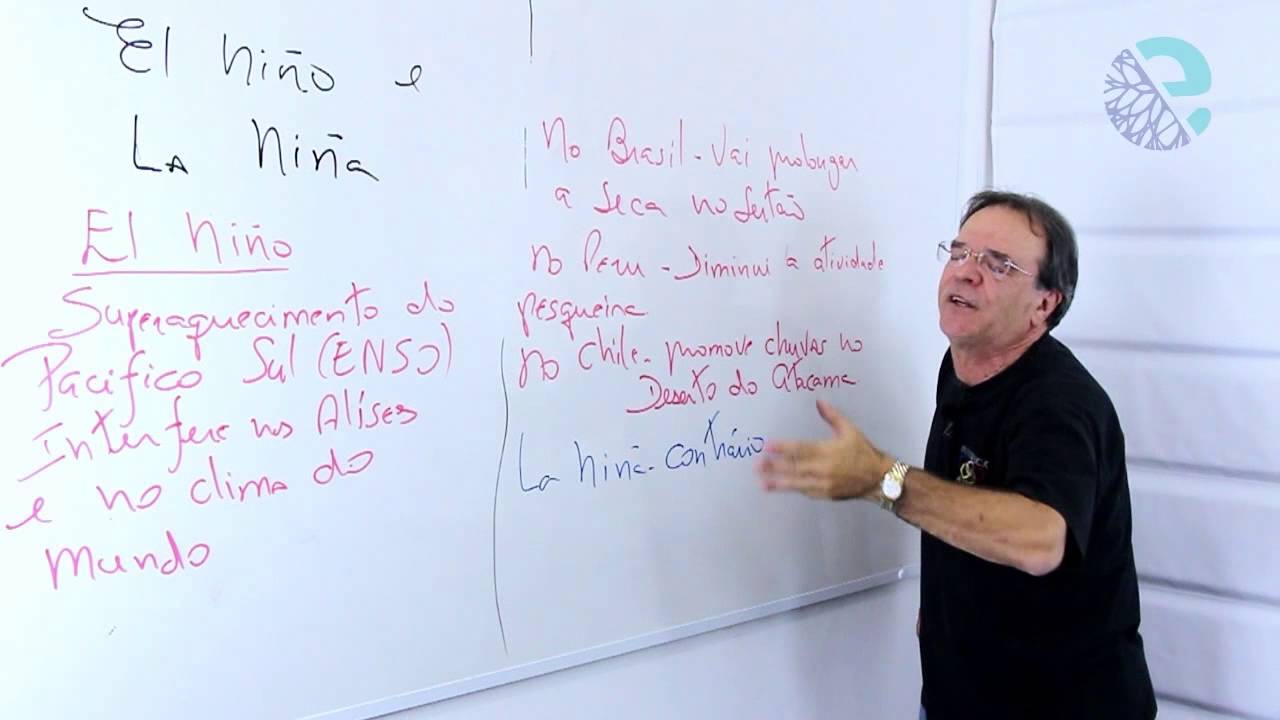 El Niño e
La Niña
El Niño
Superaquecimento do
Pacífico Sul (ENSO)
Interfere nos Alíseos
e no clima do
Mundo
No Brasil - Vai prolongar
a Seca no Sertão
No Peru - Diminui a atividade
pesqueira
No Chile - promove chuvas no
Deserto do Atacama
La Niña - contrário